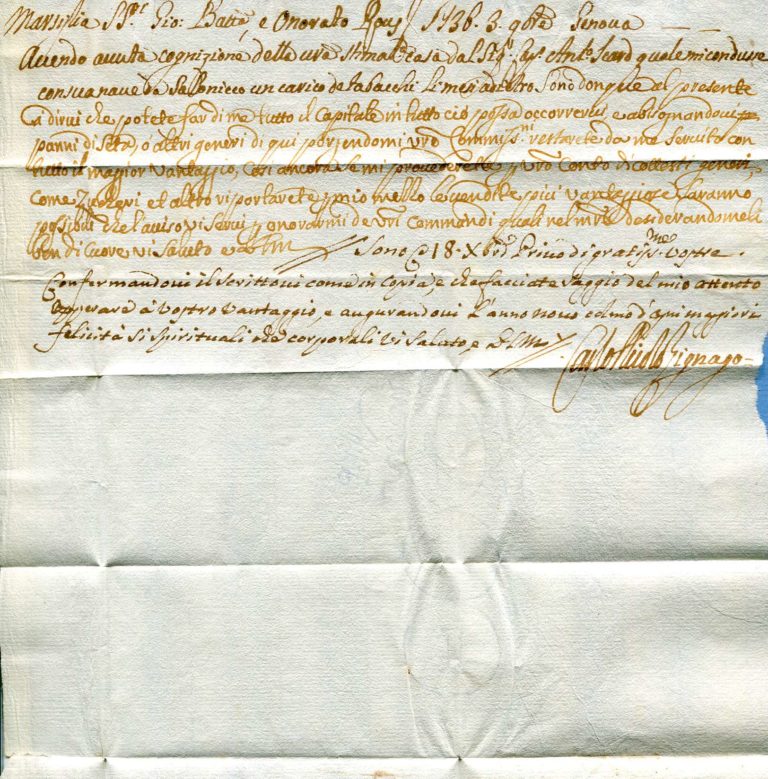 Marsilia SS.ri Gio: Batta, e Onorato 1736. 3. 9bre Genova
Avendo avuta cognizione della vra stimat. casa dal Sig. Cap. Ant. quale mi condusse
con sua nave da Sallonicco un carico de tabacchi li mesi adietro Sono dongue al presente
a dirvi che potete far di me tutto il Capitale in tutto cio possa occorrervi e abisognandovi
panni di Seta, o altri generi di qui porgendomi vro Commiss.ni restarete da me servito con
tutto il magior Vantaggio, Cosi ancora se mi provederete p vro Conto di cottesti generi
come Zuccheri et altro riportarete p mio mezzo le vendite piu Vantaggiose saranno
possibili che l'aviso vi servi p onorarmi de vri Commandi quali nel mentre desiderandomeli
ben di Cuore vi Saluto e
Sono a 18. Xbre Privo di gratiss.me Vostre.
Confermandovi il Scrittovi come in Copia, e che facciate Saggio del mio attento
operare à Vostro Vantaggio, e augurandovi l'anno novo colmo d'ogni magiori
felicità Si Spirituali che corporali vi Saluto, e
Carlo Gignago